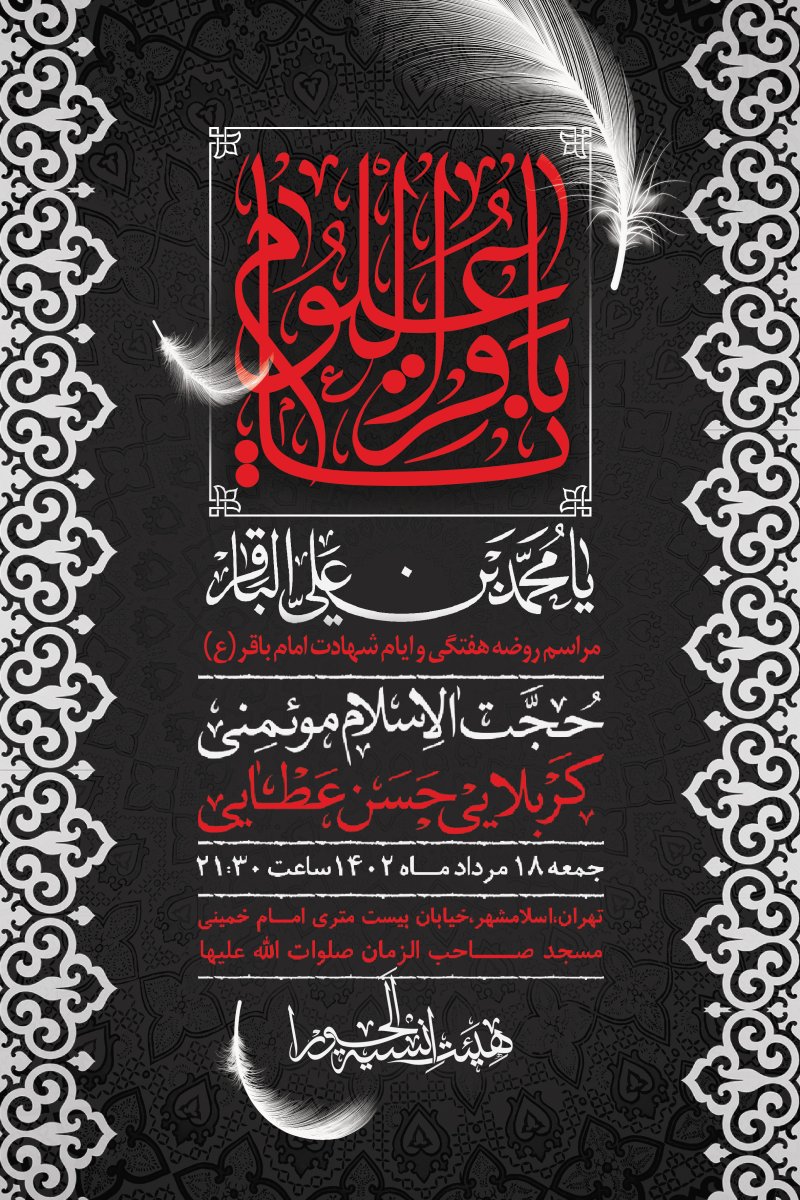 یا باقرالعلوم ع
یا مُحَمَّد بَن عَلیِّ الباقر
مراسم روضه هفتگی و ایام شهادت امام باقر (ع)
حُجَّت الاِسلام موئمِنی
کَربلایی حَسَن عَطایی
جمعه ۱۸ مرداد ماه ۱۴۰۲ ساعت ۲۱:۳۰
تهران،اسلامشهر،خیابان بیست متری امام خمینی
مسجد صاحب الزمان صلوات الله علیها
هیئت انسیه الحورا